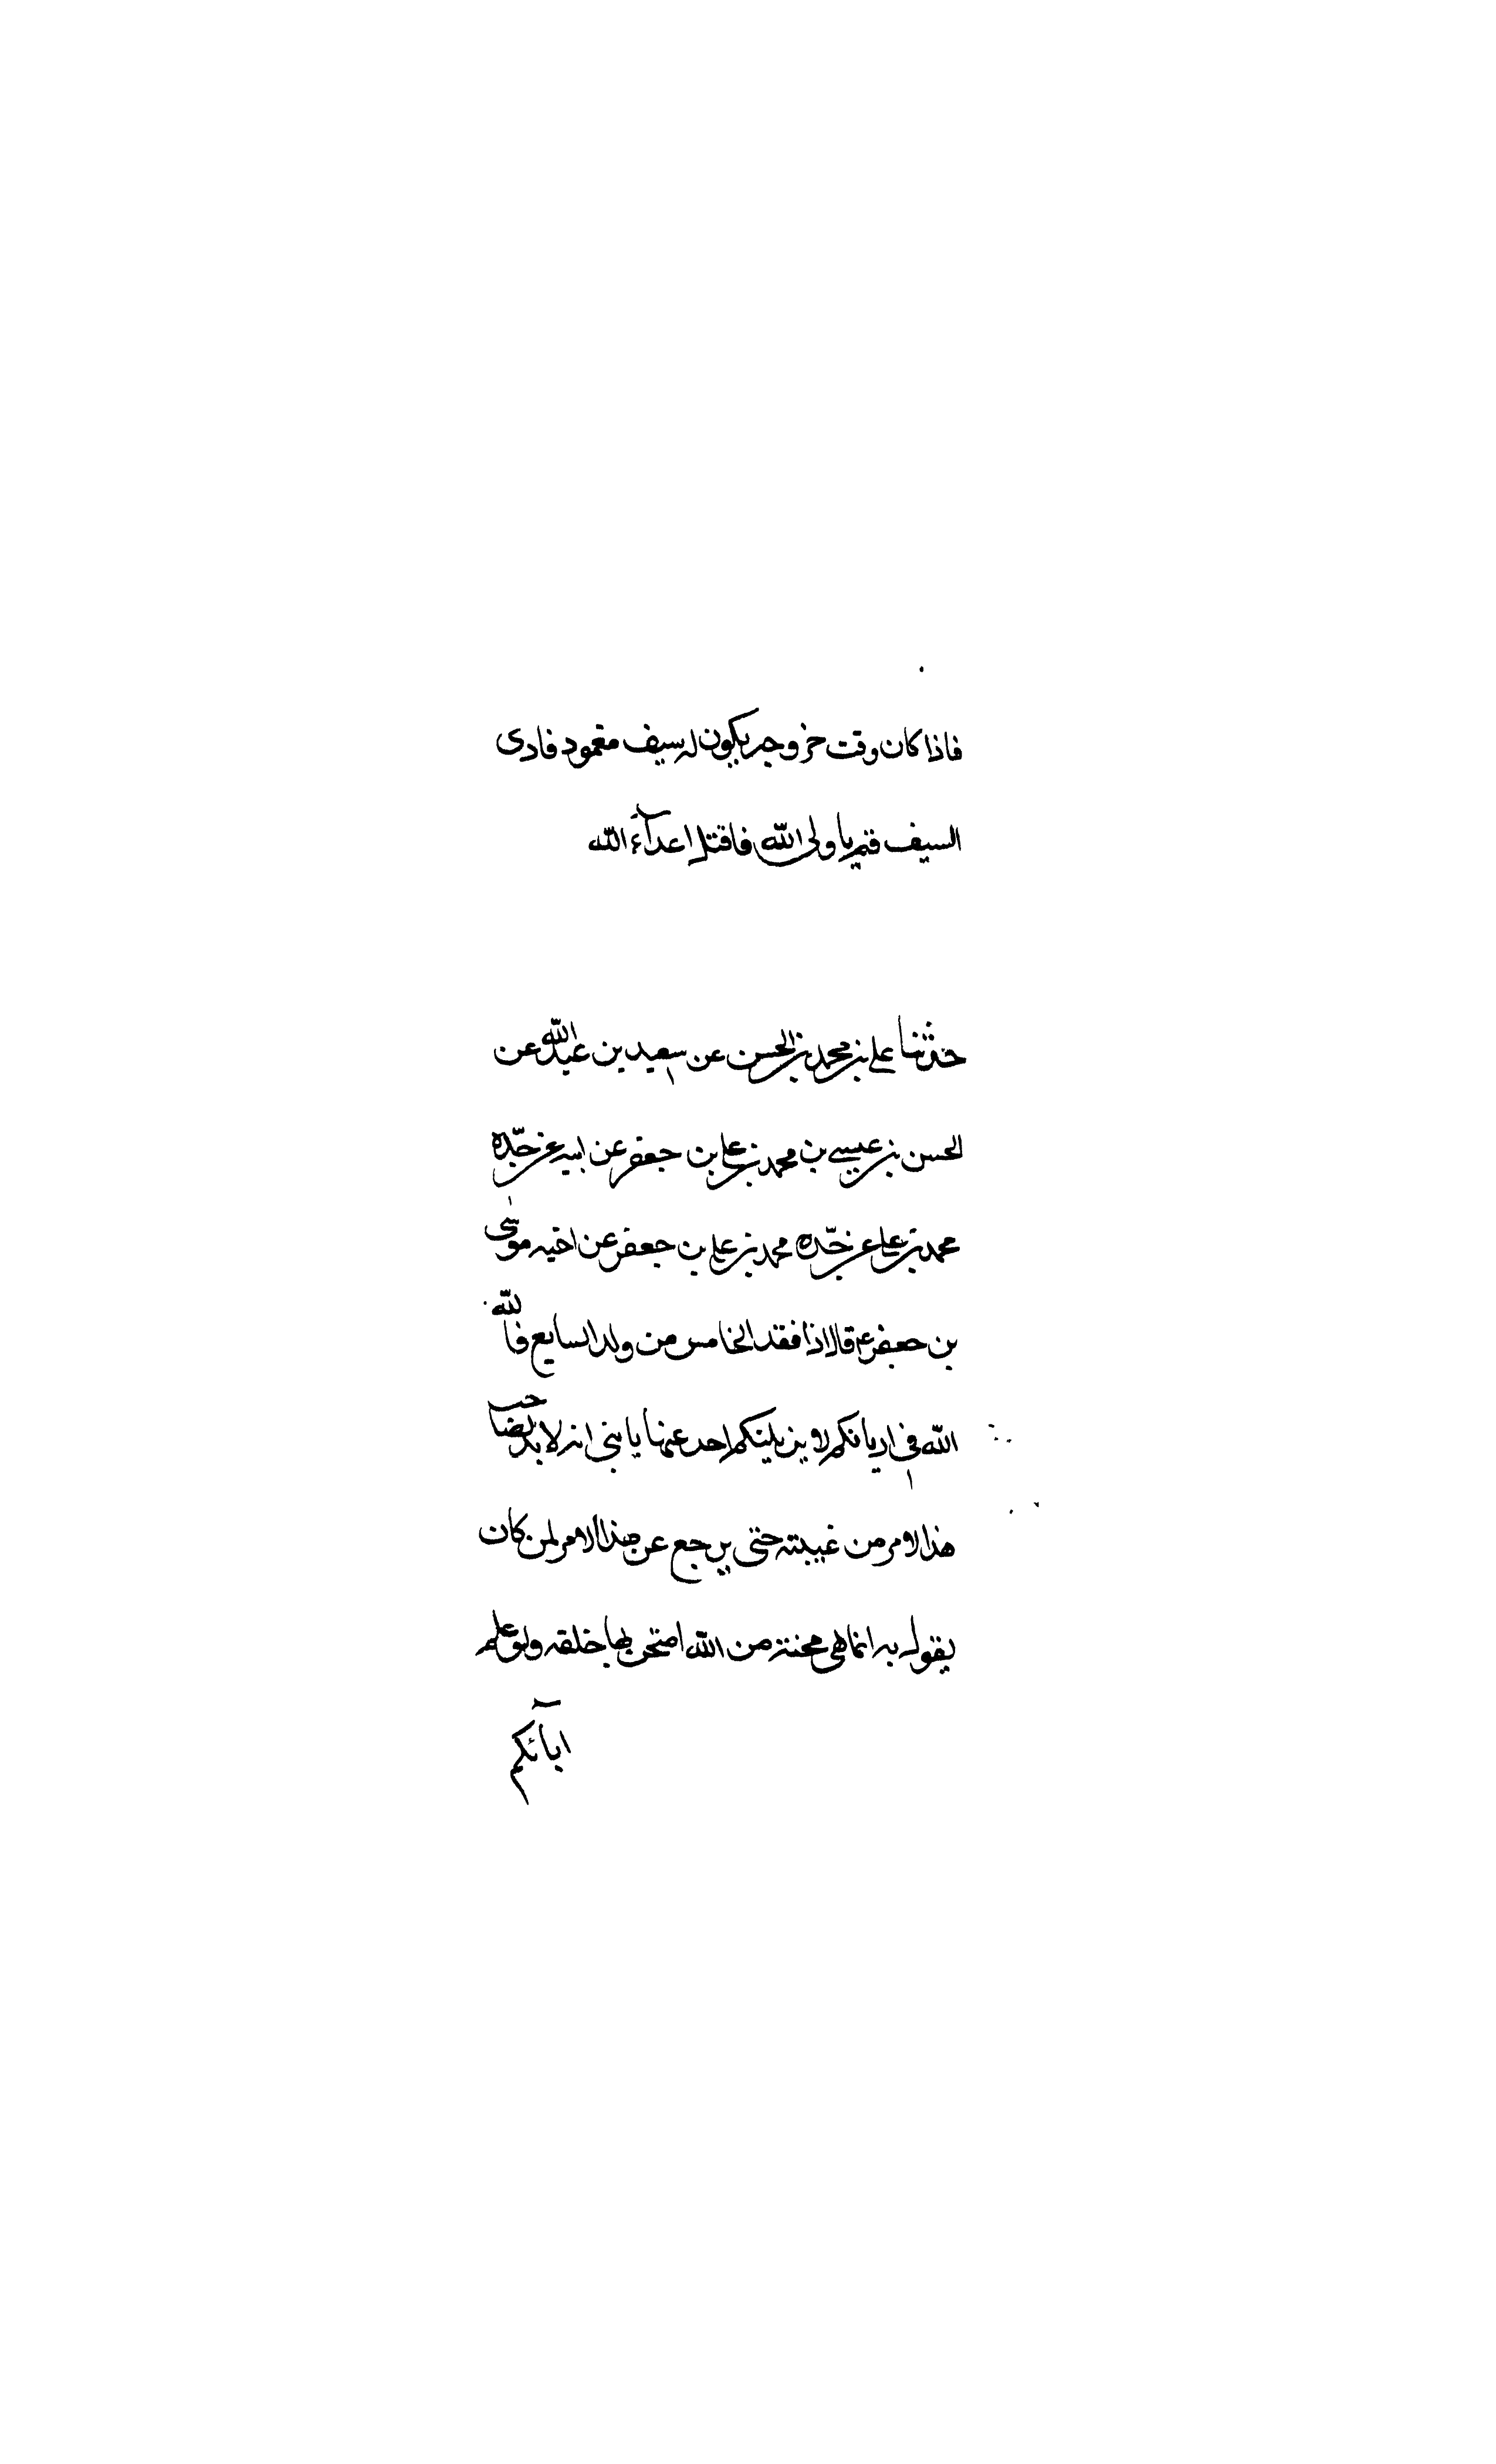 فاذا كان وقت خروجه يكون له سيف مغمود فادى
السيف قم يا ولى الله فاقتل اعدآء الله
حدثنا على بن محمد بن الحسن عن سعيد بن عبد الله عن
الحسن بن عيسى بن محمد بن على بن جعفر عن ابيه عن جدّه
محمد بن على عن جدّه محمد بن على بن جعفر عن اخيه موسى
بن جعفر ع قال اذا فقد الخامس من ولد السابع فالله
الله فى اديانكم لا يزيلنكم احد عنها يا بنى انه لا بد لصاحب
هذا لامر من غيبته حتى يرجع عن هذا الامر لمن كان
يقول به انما هى محنة من الله امتحن بها خلقه ولو علم
ابآئكم